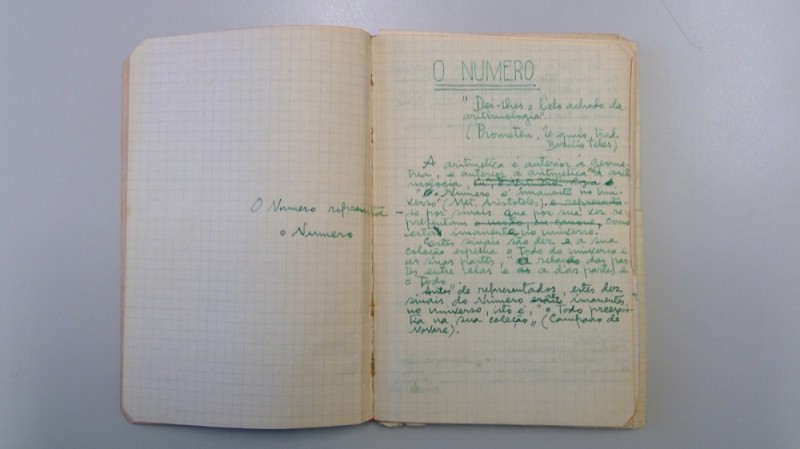 O Numero representa –
o Numero
O NUMERO
"Dei-lhes o belo achado da
aritmologia"
(Prometeu, Esquilo, trad.
Basilio Teles)
A aritmetica é anterior à geome-
tria, e anterior à aritmetica a arit-
mologia,
"O Numero é imanente no uni-
verso" (Met. Aristoteles).
se por sinais que por sua vez re-
presentam como
está imanente no universo.
Estes sinais são dez e a sua
coleção espelha o Todo do universo e
as suas partes, "a relação das par-
tes entre elas e a das partes e
o Todo
Antes de representados, estes dez
sinais do Numero imanentes
no universo, isto é, "o Todo preexis-
tia na sua coleção" (Campano de
Novare).